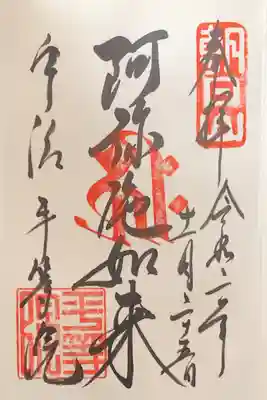 朝日山
奉拝 令和二年
十一月二十五日
阿弥陀如来
宇治 平等院